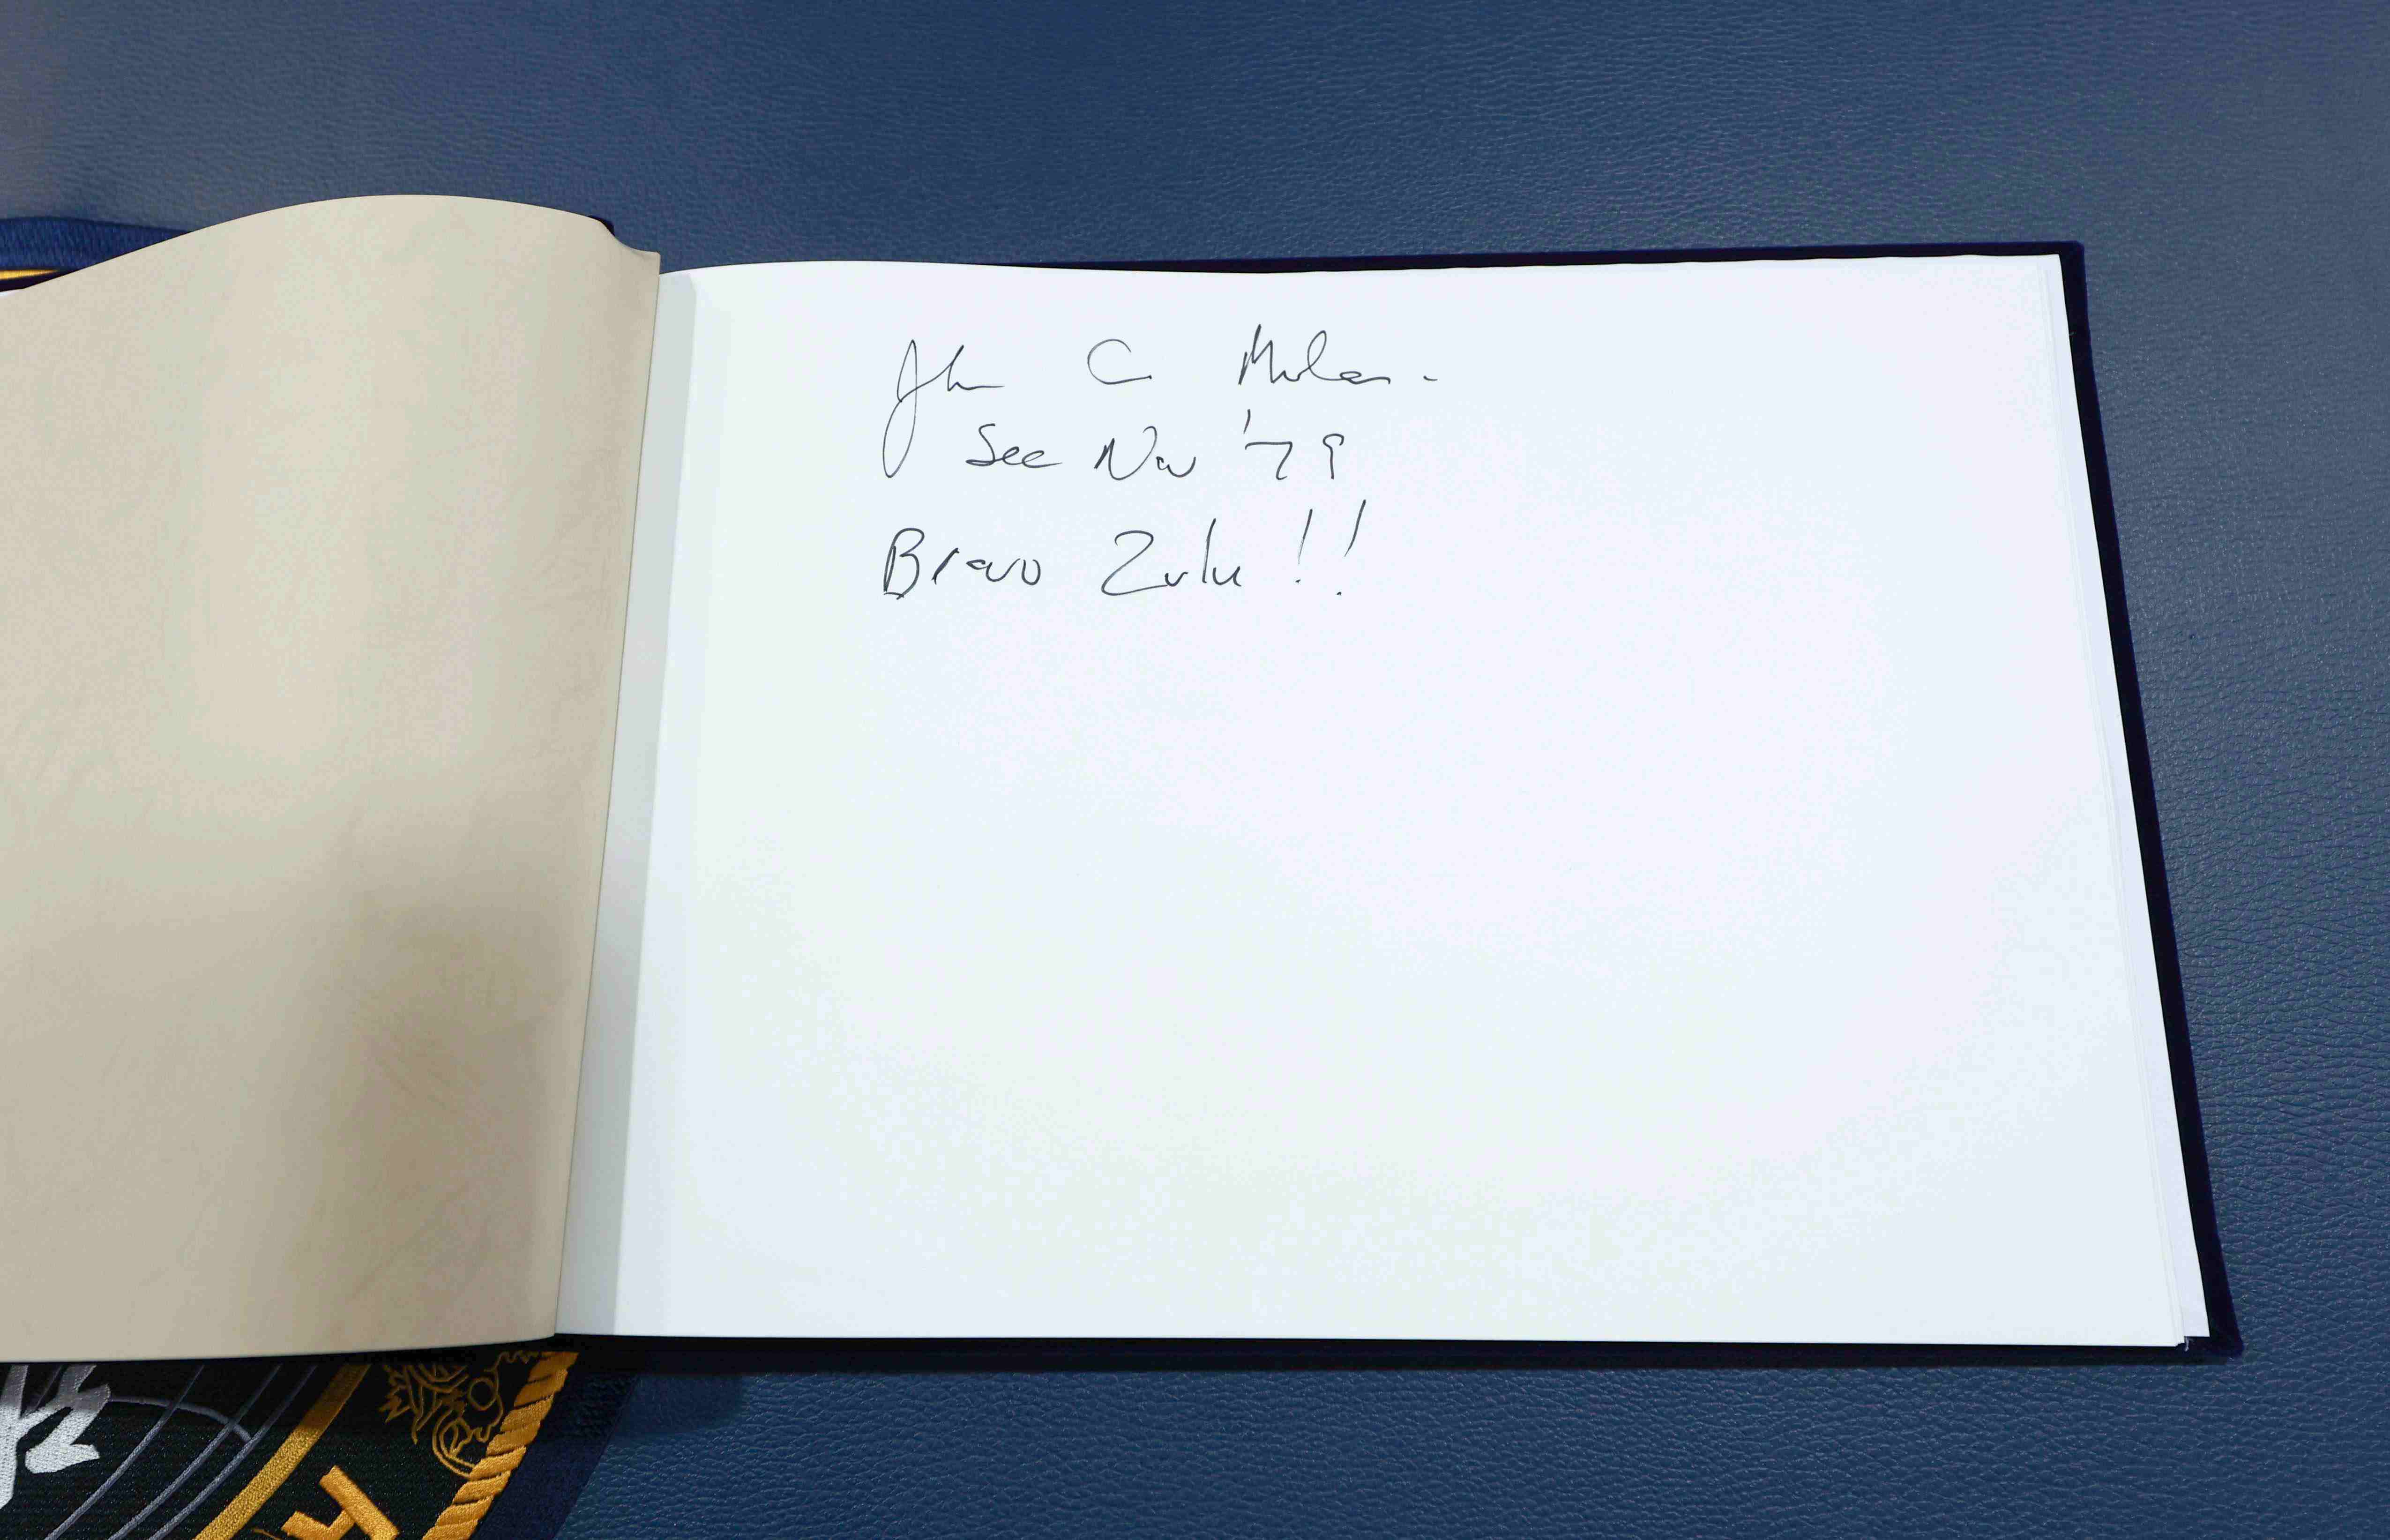 John C. Phelan
Sec Nav '79
Bravo Zulu !!